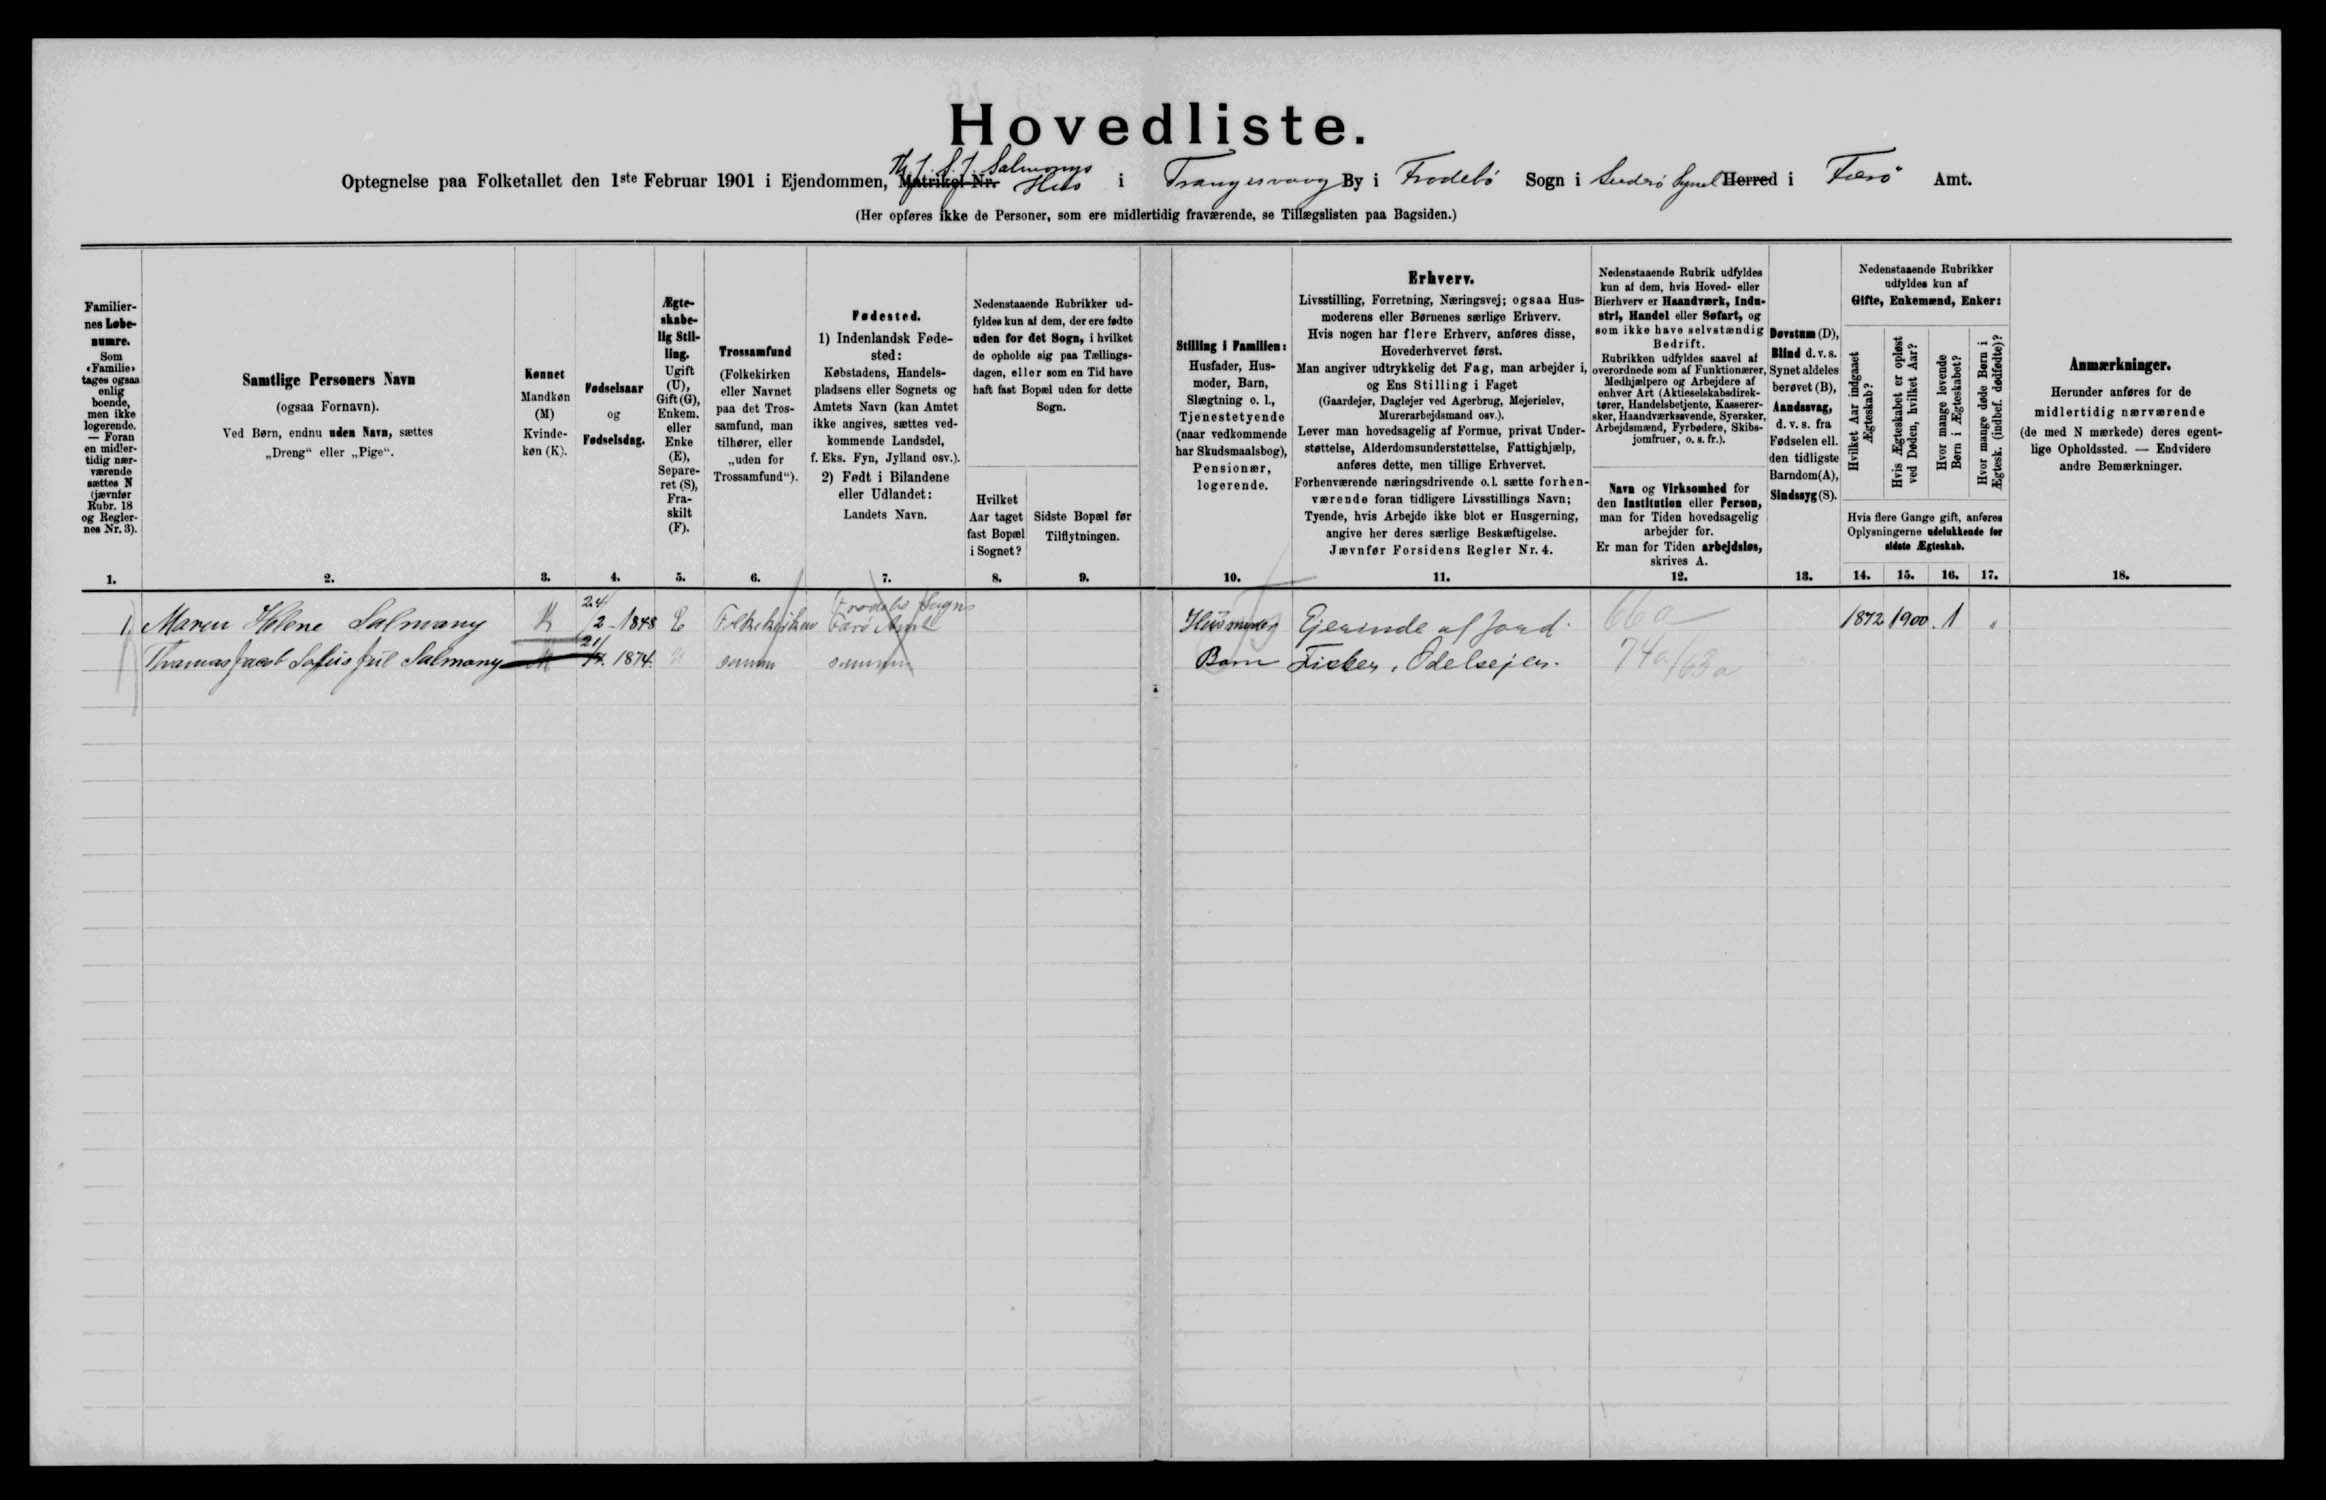 Hovedliste.
Optegnelse paa Folketallet den 1ste Februar 1901 i Ejendommen, Matrikel Nr. Th. J. S. J. Salmonys Hus i Trangesvaag By i Frodebö Sogn i Suderö Syssel Herred i Færö Amt.
(Her opføres ikke de Personer, som ere midlertidig fraværende, se Tillægslisten paa Bagsiden.)
Familier-
nes Løbe-
numre.
Som
«Familie»
tages ogsaa
enlig
boende,
men ikke
logerende.
— Foran
en midler-
tidig nær-
værende
sættes N
(jævnfør
Rubr. 18
og Regler-
nes Nr. 3).
1.
Samtlige Personers Navn
(ogsaa Fornavn).
Ved Børn, endnu uden Navn, sættes
„Dreng“ eller „Pige“.
2.
Kønnet
Mandkøn
(M)
Kvinde-
køn (K).
3.
Fødselsaar
og
Fødselsdag.
4.
Ægte-
skabe-
lig Stil-
ling.
Ugift
(U),
Gift (G),
Enkem.
eller
Enke
(E),
Separe-
ret (S),
Fra-
skilt
(F).
5.
Trossamfund
(Folkekirken
eller Navnet
paa det Tros-
samfund, man
tilhører, eller
„uden for
Trossamfund“).
6.
Fødested.
1) Indenlandsk Føde-
sted:
Købstadens, Handels-
pladsens eller Sognets og
Amtets Navn (kan Amtet
ikke angives, sættes ved-
kommende Landsdel,
f. Eks. Fyn, Jylland osv.).
2) Født i Bilandene
eller Udlandet:
Landets Navn.
7.
Nedenstaaende Rubrikker ud-
fyldes kun af dem, der ere fødte
uden for det Sogn, i hvilket
de opholde sig paa Tællings-
dagen, eller som en Tid have
haft fast Bopæl uden for dette
Sogn.
Hvilket
Aar taget
fast Bopæl
i Sognet?
8.
Sidste Bopæl før
Tilflytningen.
9.
Stilling i Familien:
Husfader, Hus-
moder, Barn,
Slægtning o. l.,
Tjenestetyende
(naar vedkommende
har Skudsmaalsbog),
Pensionær,
logerende.
10.
Erhverv.
Livsstilling, Forretning, Næringsvej; ogsaa Hus-
moderens eller Børnenes særlige Erhverv.
Hvis nogen har flere Erhverv, anføres disse,
Hovederhvervet først.
Man angiver udtrykkelig det Fag, man arbejder i,
og Ens Stilling i Faget
(Gaardejer, Daglejer ved Agerbrug, Mejerielev,
Murerarbejdsmand osv.).
Lever man hovedsagelig af Formue, privat Under-
støttelse, Alderdomsunderstøttelse, Fattighjælp,
anføres dette, men tillige Erhvervet.
Forhenværende næringsdrivende o. l. sætte forhen-
værende foran tidligere Livsstillings Navn;
Tyende, hvis Arbejde ikke blot er Husgerning,
angive her deres særlige Beskæftigelse.
Jævnfør Forsidens Regler Nr. 4.
11.
Nedenstaaende Rubrik udfyldes
kun af dem, hvis Hoved- eller
Bierhverv er Haandværk, Indu-
stri, Handel eller Søfart, og
som ikke have selvstændig
Bedrift.
Rubrikken udfyldes saavel af
overordnede som af Funktionærer,
Medhjælpere og Arbejdere af
enhver Art (Aktieselskabsdirek-
tører, Handelsbetjente, Kasserer-
sker, Haandværkssvende, Syersker,
Arbejdsmænd, Fyrbødere, Skibs-
jomfruer, o. s. fr.).
Navn og Virksomhed for
den Institution eller Person,
man for Tiden hovedsagelig
arbejder for.
Er man for Tiden arbejdsløs,
skrives A.
12.
Døvstum (D),
Blind d. v. s.
Synet aldeles
berøvet (B),
Aandssvag,
d. v. s. fra
Fødselen ell.
den tidligste
Barndom (A),
Sindssyg (S).
13.
Nedenstaaende Rubrikker
udfyldes kun af
Gifte, Enkemænd, Enker:
Hvilket Aar indgaaet
Ægteskab?
Hvis Ægteskabet er opløst
ved Døden, hvilket Aar?
Hvor mange levende
Børn i Ægteskabet?
Hvor mange døde Børn i
Ægtesk. (indbef. dødfødte)?
Hvis flere Gange gift, anføres
Oplysningerne udelukkende for
sidste Ægteskab.
14. 15. 16. 17.
Anmærkninger.
Herunder anføres for de
midlertidig nærværende
(de med N mærkede) deres egent-
lige Opholdssted. — Endvidere
andre Bemærkninger.
18.
1. Maren Helene Salmony K 24/2 - 1848 E Folkekirken Frodebö Sogn Færö Amt Husmoder Ejerinde af Jord. 66a 1872 1900 1 "
Thomas Jacob Sofus Jul Salmony M 21 1874. U samme samme Barn Fisker, Odelsejer. 74a/63a